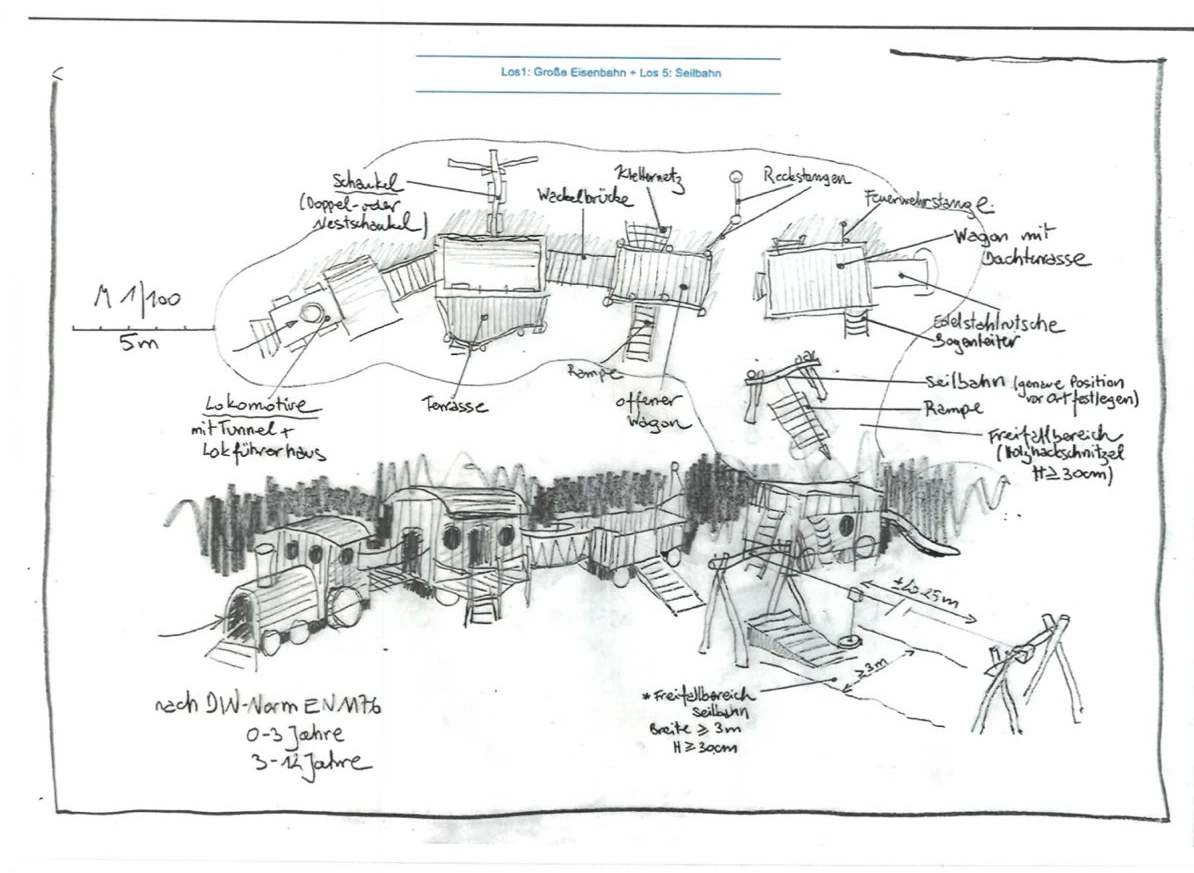 Los1: Große Eisenbahn + Los 5: Seilbahn
Schaukel
(Doppel- oder
Nestschaukel)
Wackelbrücke
Kletternetz
Reckstangen
Feuerwehrstange
Wagon mit
Dachterrasse
M 1/100
5m
Edelstahlrutsche
Bogenleiter
Rampe
Seilbahn (genaue Position
vor Ort festlegen)
Rampe
Lokomotive
mit Tunnel +
Lokführerhaus
Terrasse
offener
Wagon
Freifallbereich
(Holzhackschnitzel
H ≥ 30cm)
± 20-25m
≥ 3m
* Freifallbereich
Seilbahn
Breite ≥ 3m
H ≥ 30cm
nach DIN-Norm EN 1176
0-3 Jahre
3-12 Jahre